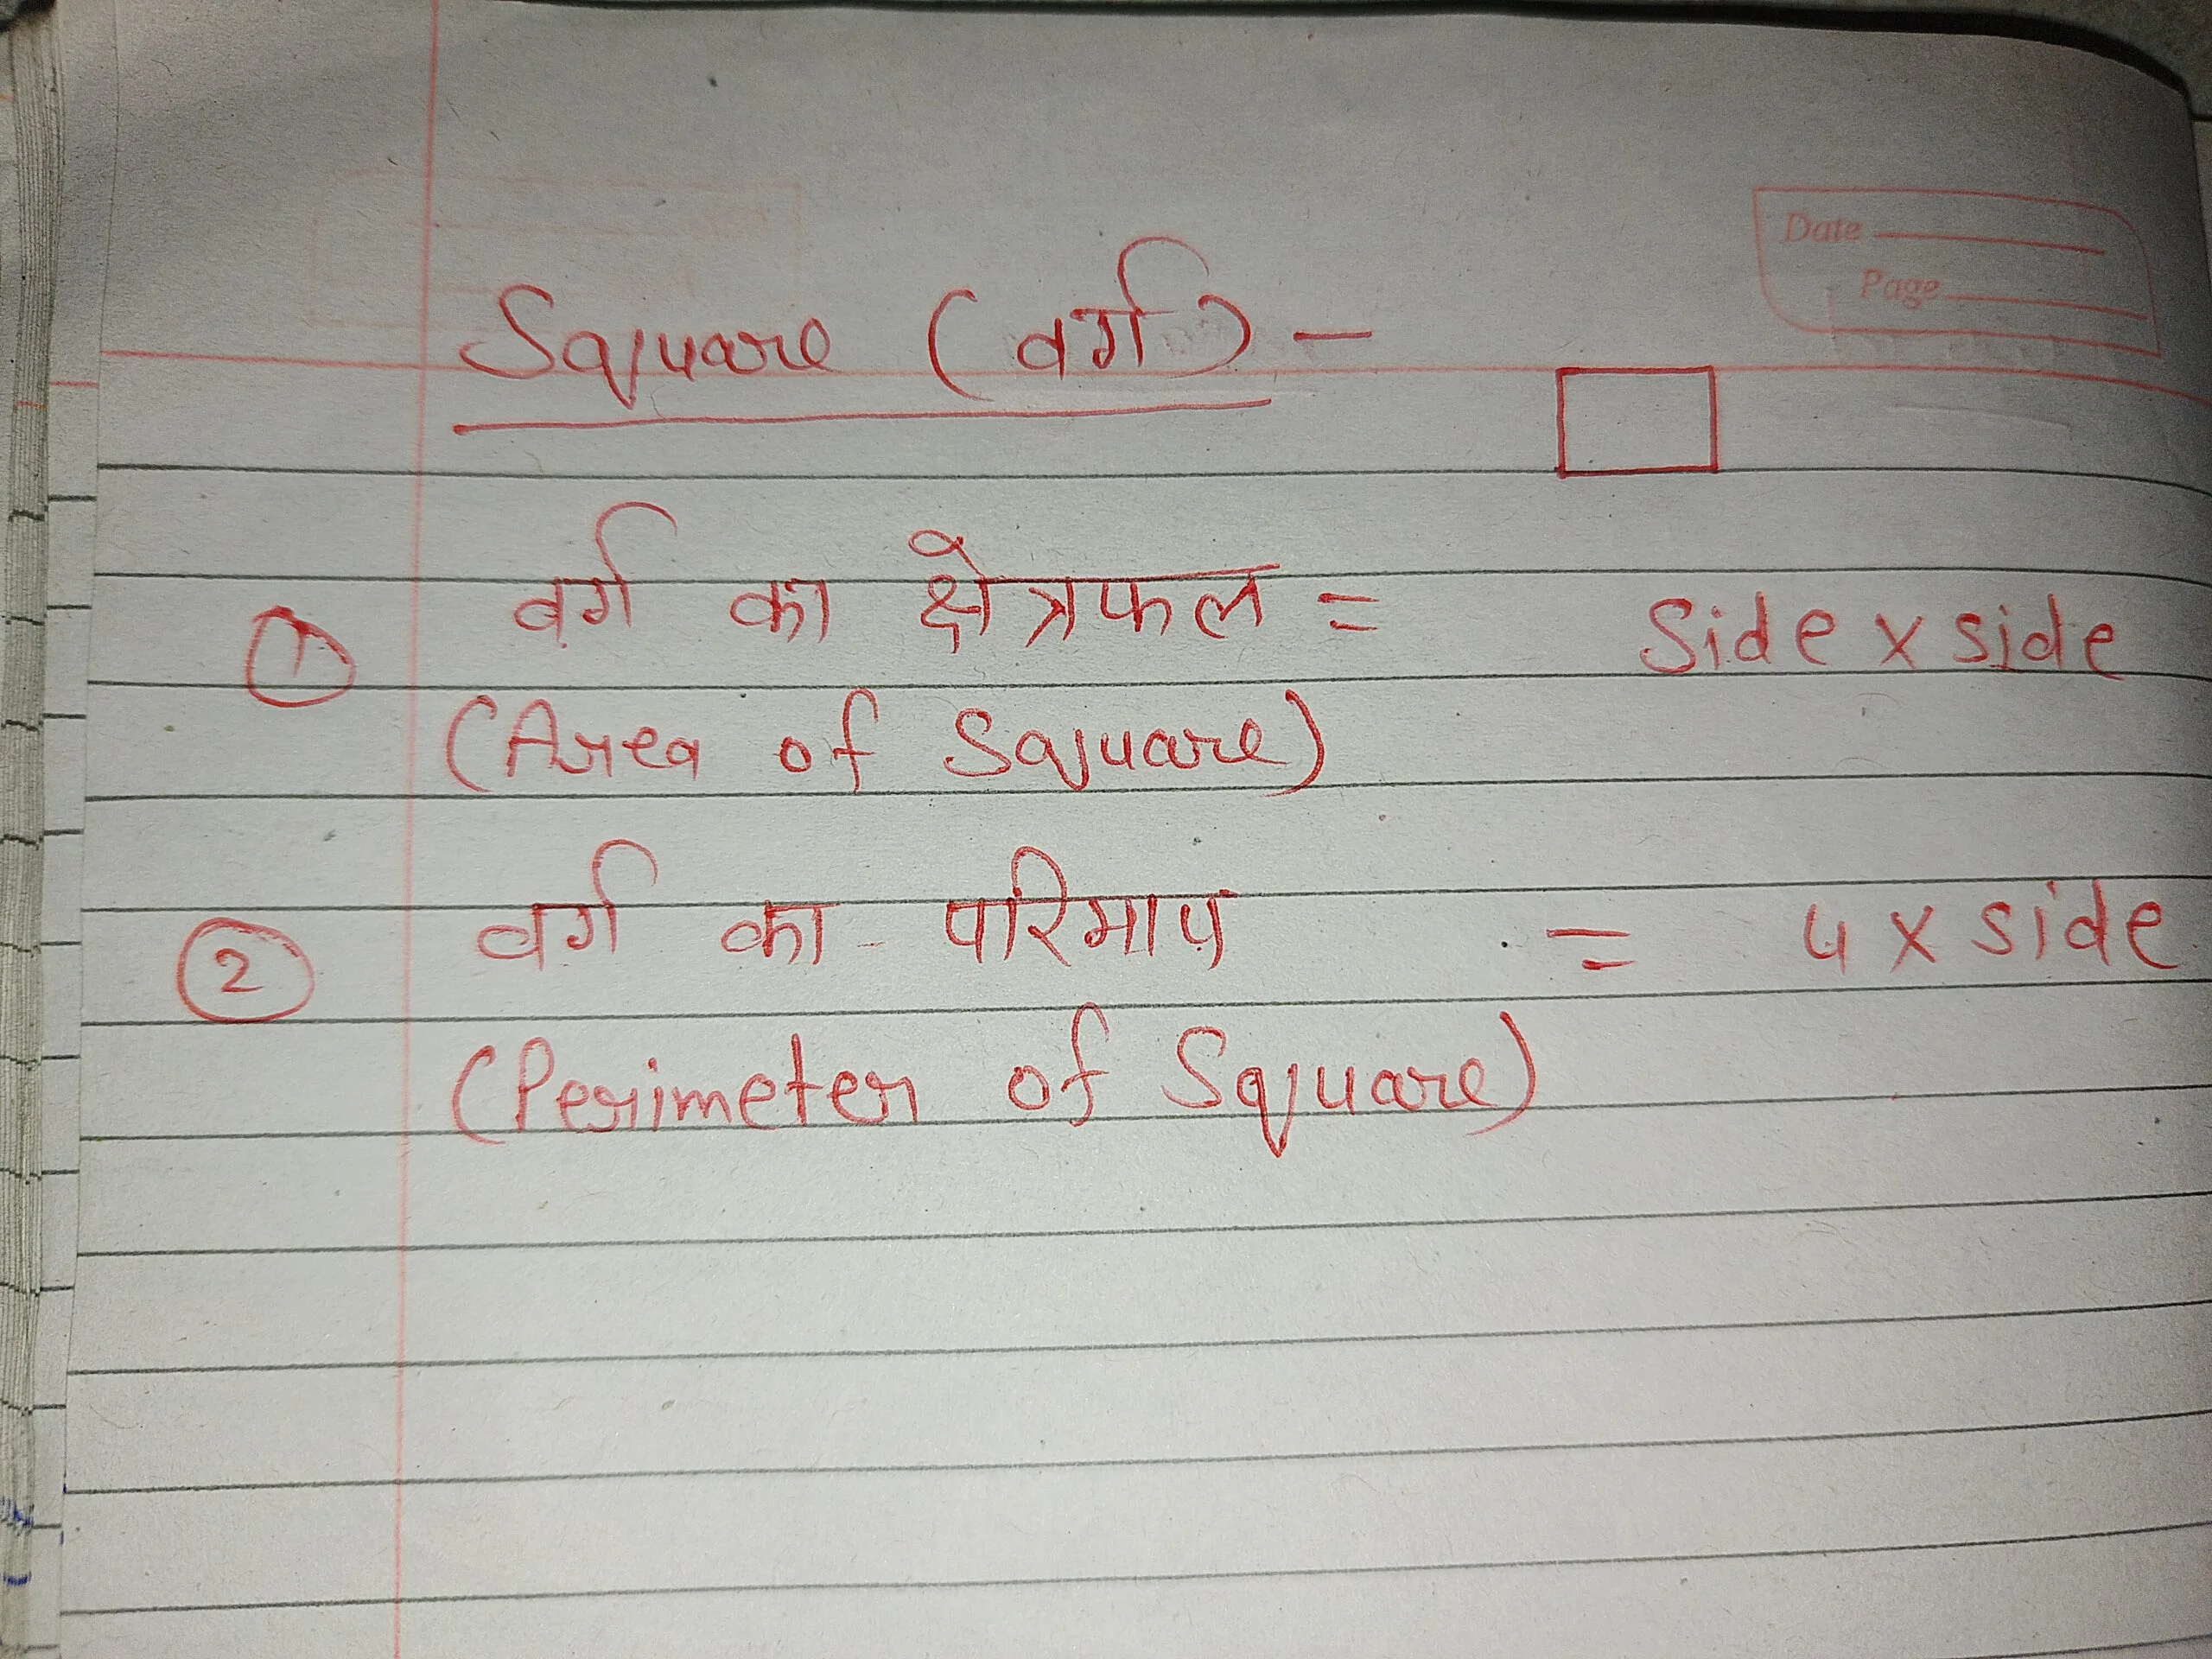 Date
Page
Square (वर्ग) –
① वर्ग का क्षेत्रफल = Side x side
(Area of Square)
② वर्ग का परिमाप = 4 x side
(Perimeter of Square)